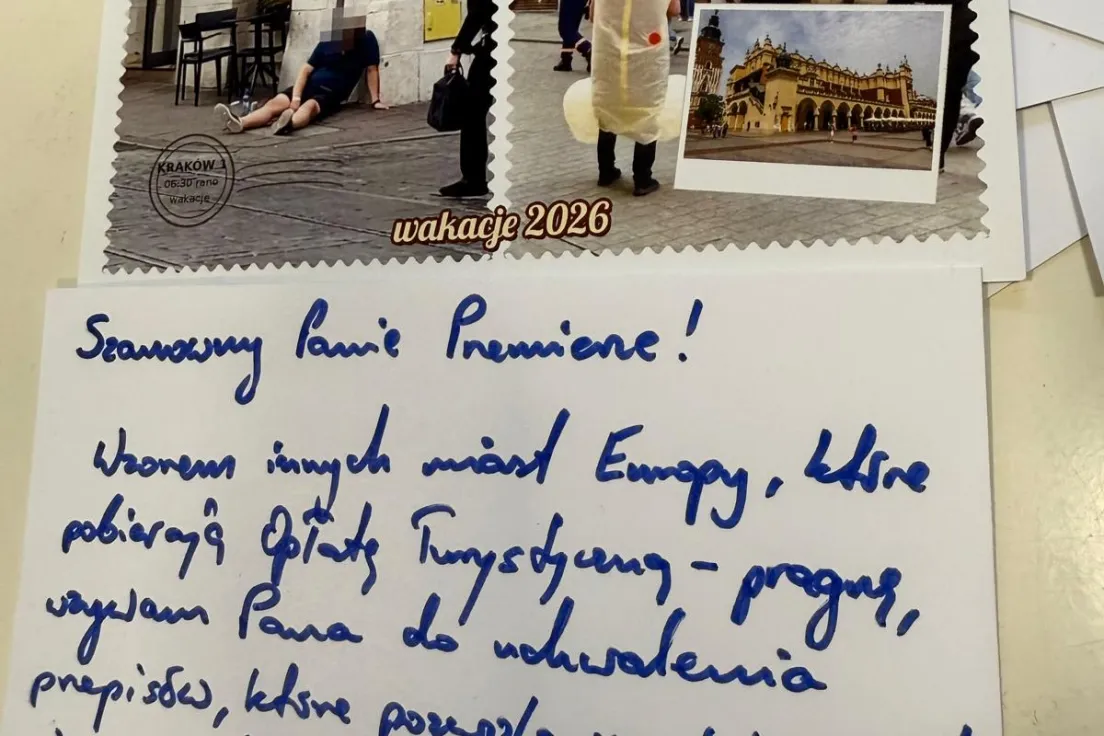 KRAKÓW 1
06:30 rano
wakacje
wakacje 2026
Szanowny Panie Premierze!
Wzorem innych miast Europy, które
pobierają Opłatę Turystyczną – pragnę,
wzywam Pana do uchwalenia
przepisów, które